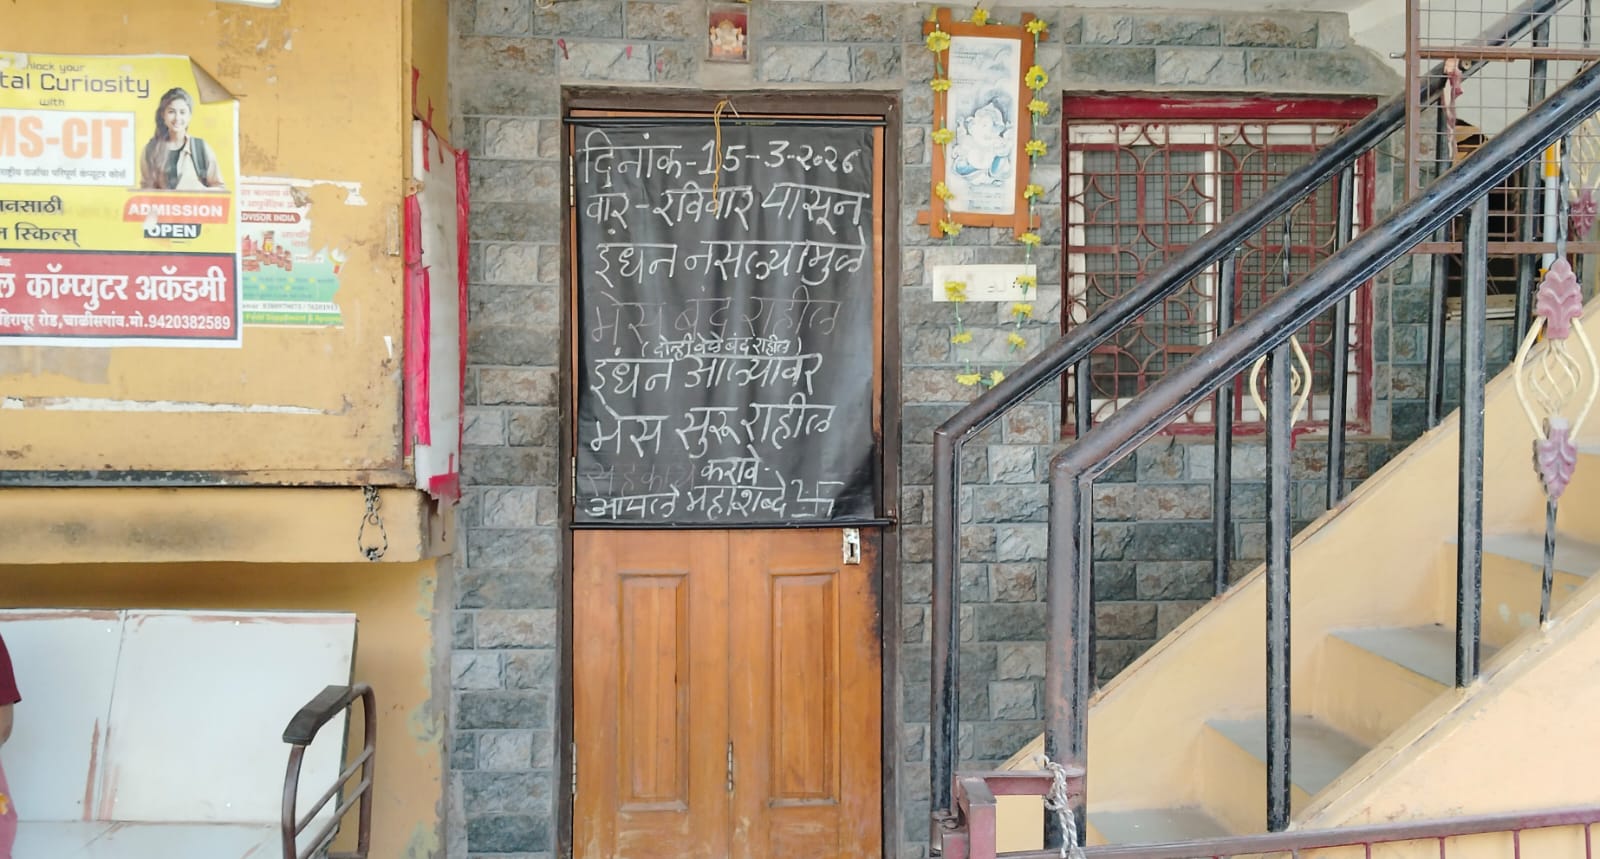 दिनांक-15-3-२०२६
वार-रविवार पासून
इंधन नसल्यामुळे
मेस बंद राहील
(दोन्ही वेळ बंद राहील)
इंधन आल्यावर
मेस सुरू राहील
सहकार्य करावे-
आपले महाशब्दे
unlock your
tal Curiosity
with
MS-CIT
ADMISSION
OPEN
नसाठी
न स्किल्स्
ल कॉम्प्युटर अकॅडमी
हिरापूर रोड,चाळीसगांव.मो.9420382589
ADVISOR INDIA